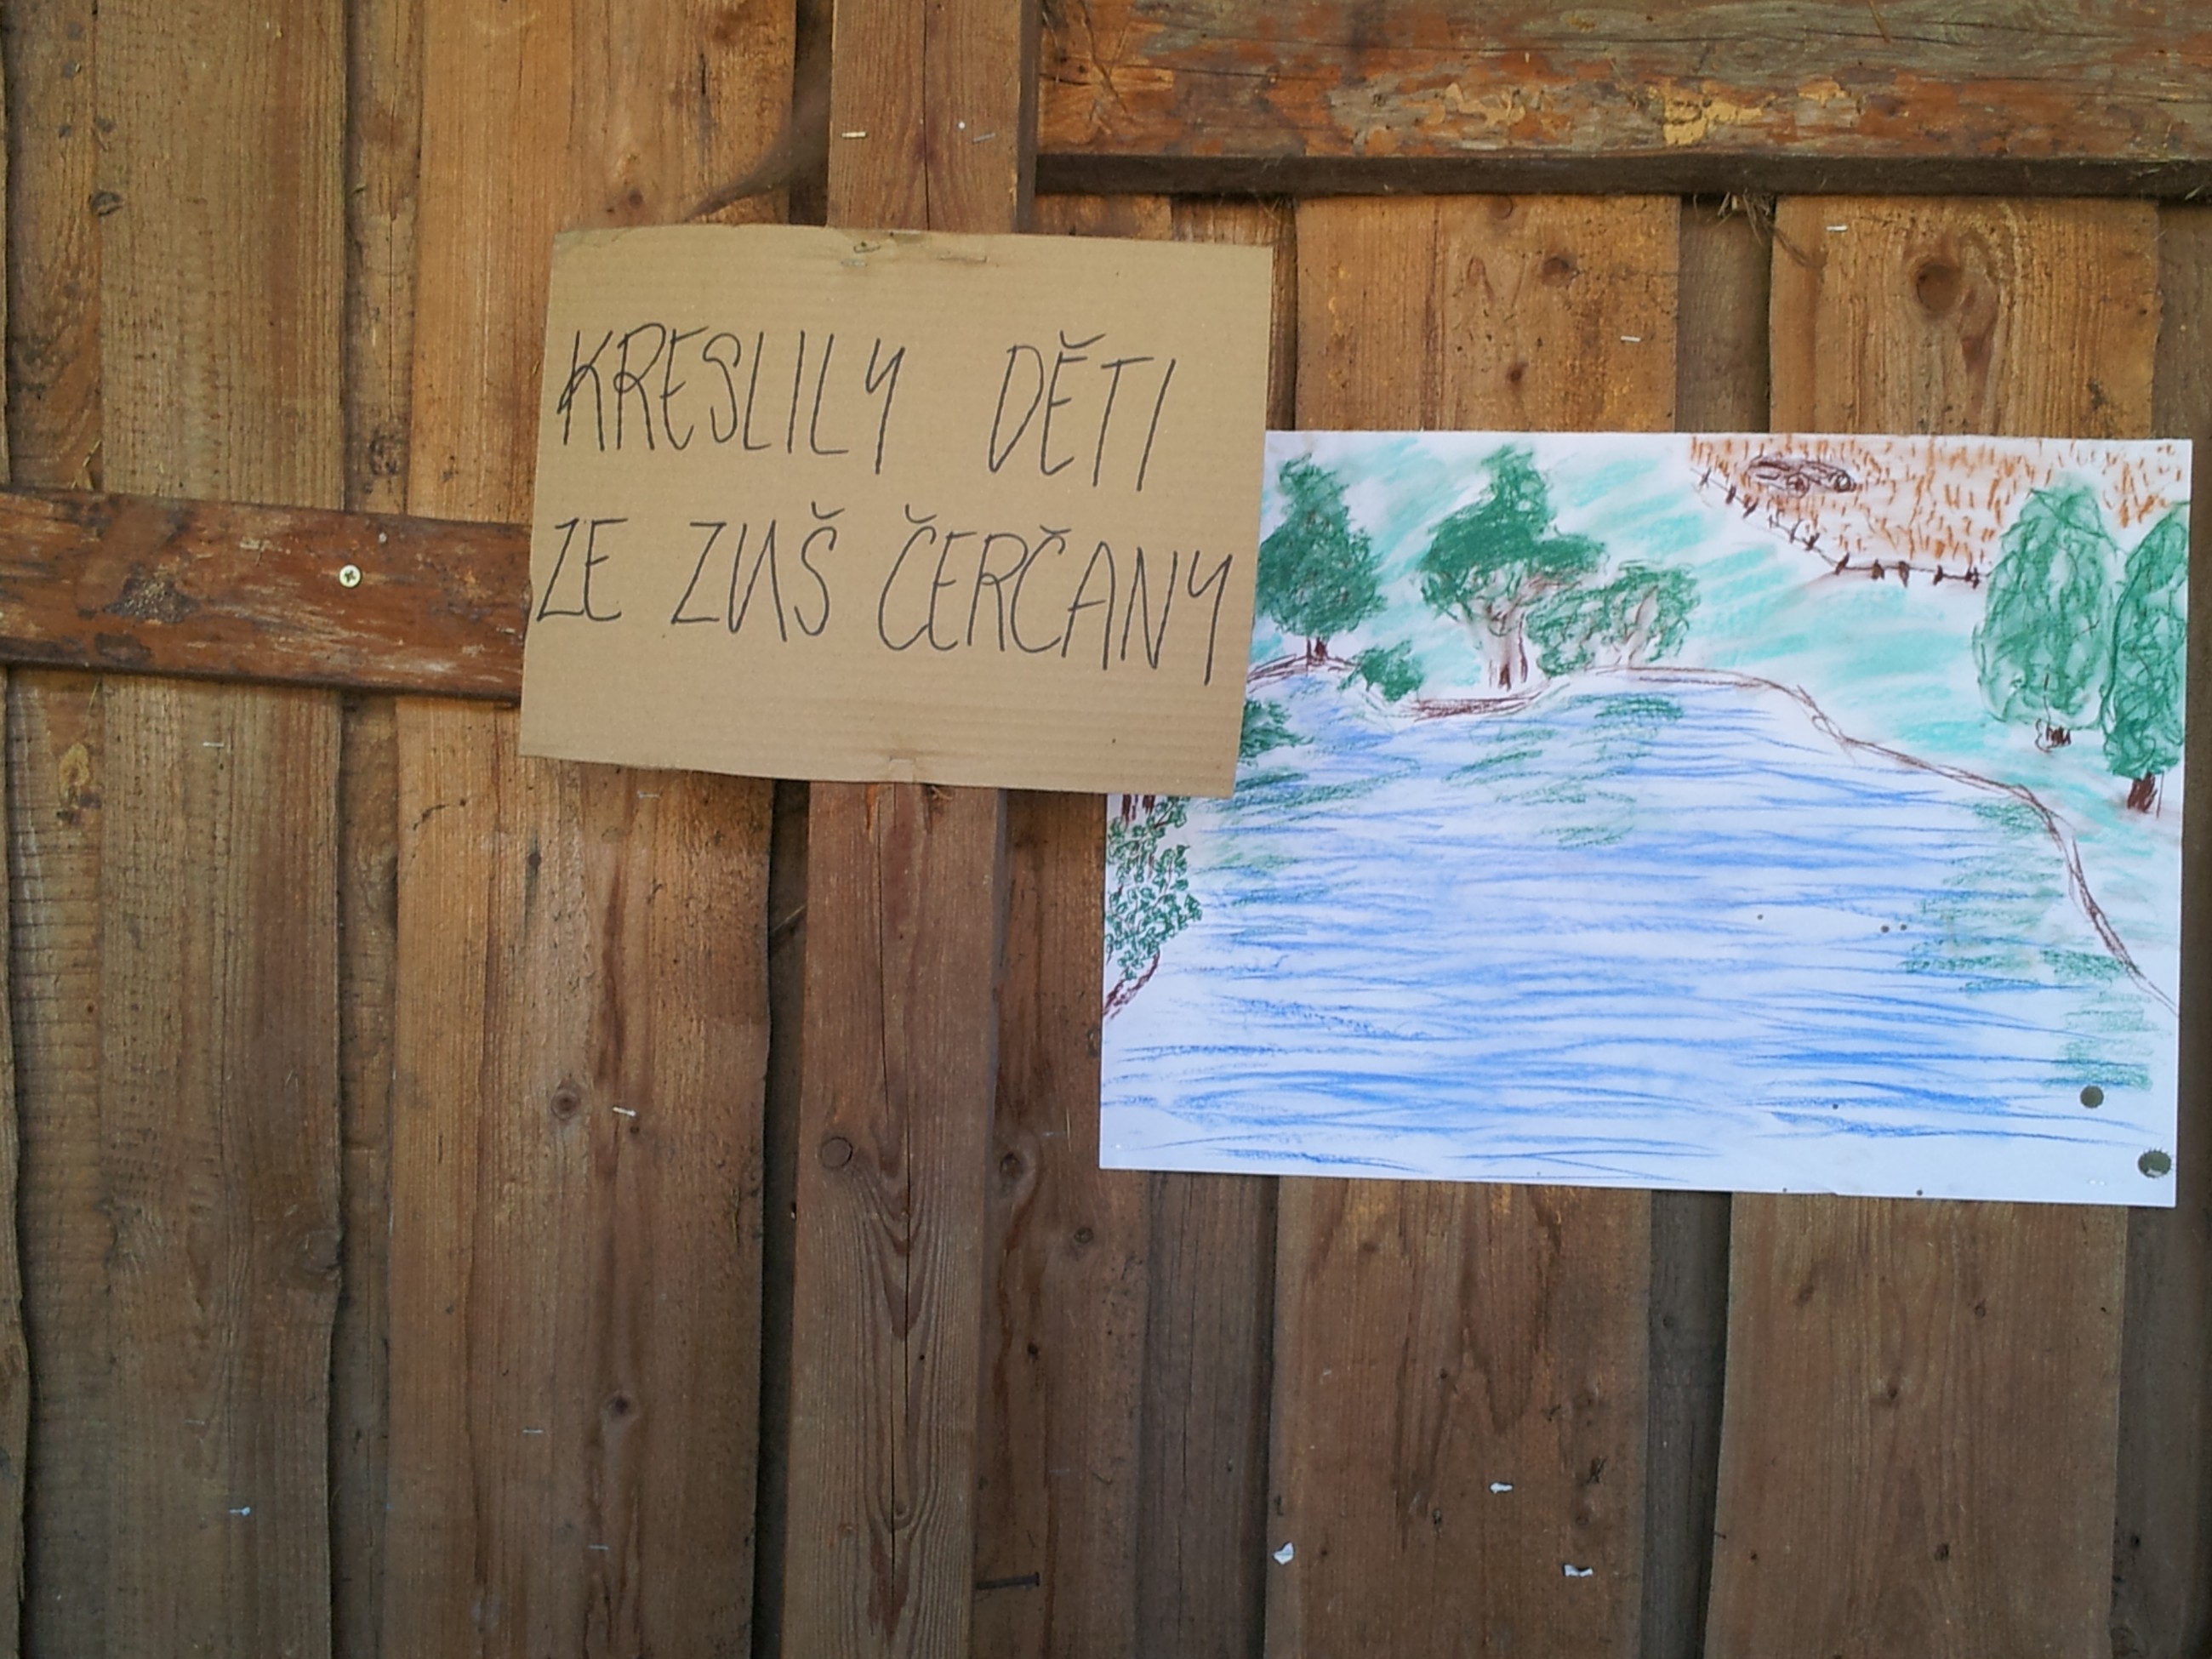 KRESLILY DĚTI
ZE ZUŠ ČERČANY